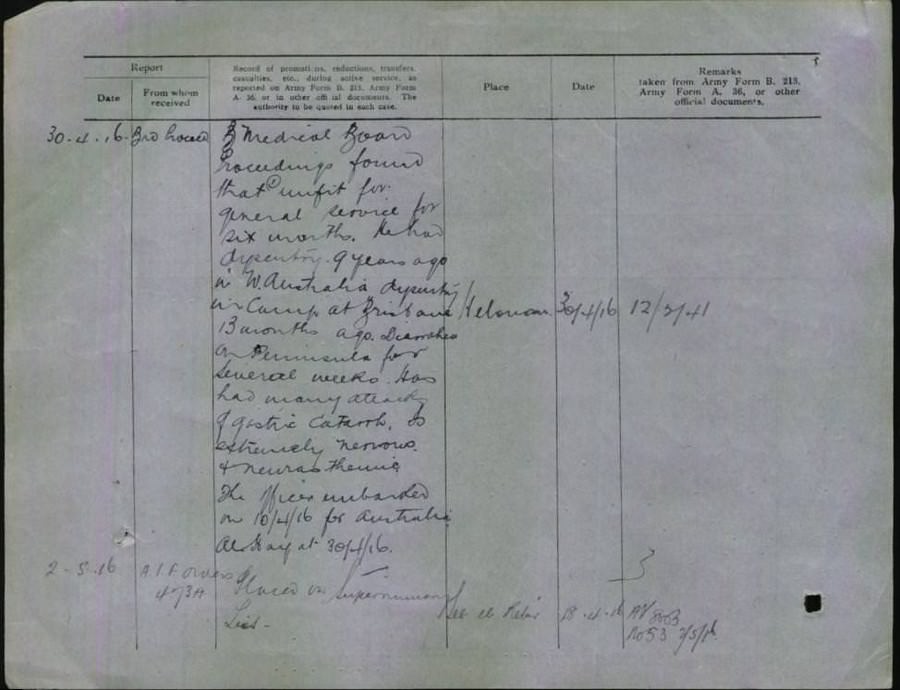 Report
Date
From whom received
Record of promotions, reductions, transfers,
casualties, etc., during active service, as
reported on Army Form B. 213, Army Form
A. 36, or in other official documents. The
authority to be quoted in each case.
Place
Date
Remarks
taken from Army Form B. 213,
Army Form A. 36, or other
official documents.
30.4.16
B Medical Board
Proceedings found
that unfit for
general service for
six months. He had
dysentry. 9 years ago
in W. Australia dysentry
in Camp at Brisbane
Helouan
30/4/16
13 months ago. Diarrhoea
on Peninsula for
several weeks. Has
had many attacks
of gastric Catarrh, is
extremely nervous
& neurasthenic
The Officer embarked
on 10/4/16 for Australia
at 30/4/16.
2-5-16
A.I.F. orders
Placed on Supernumerary
List -
Tel el Kebir
18.4.16